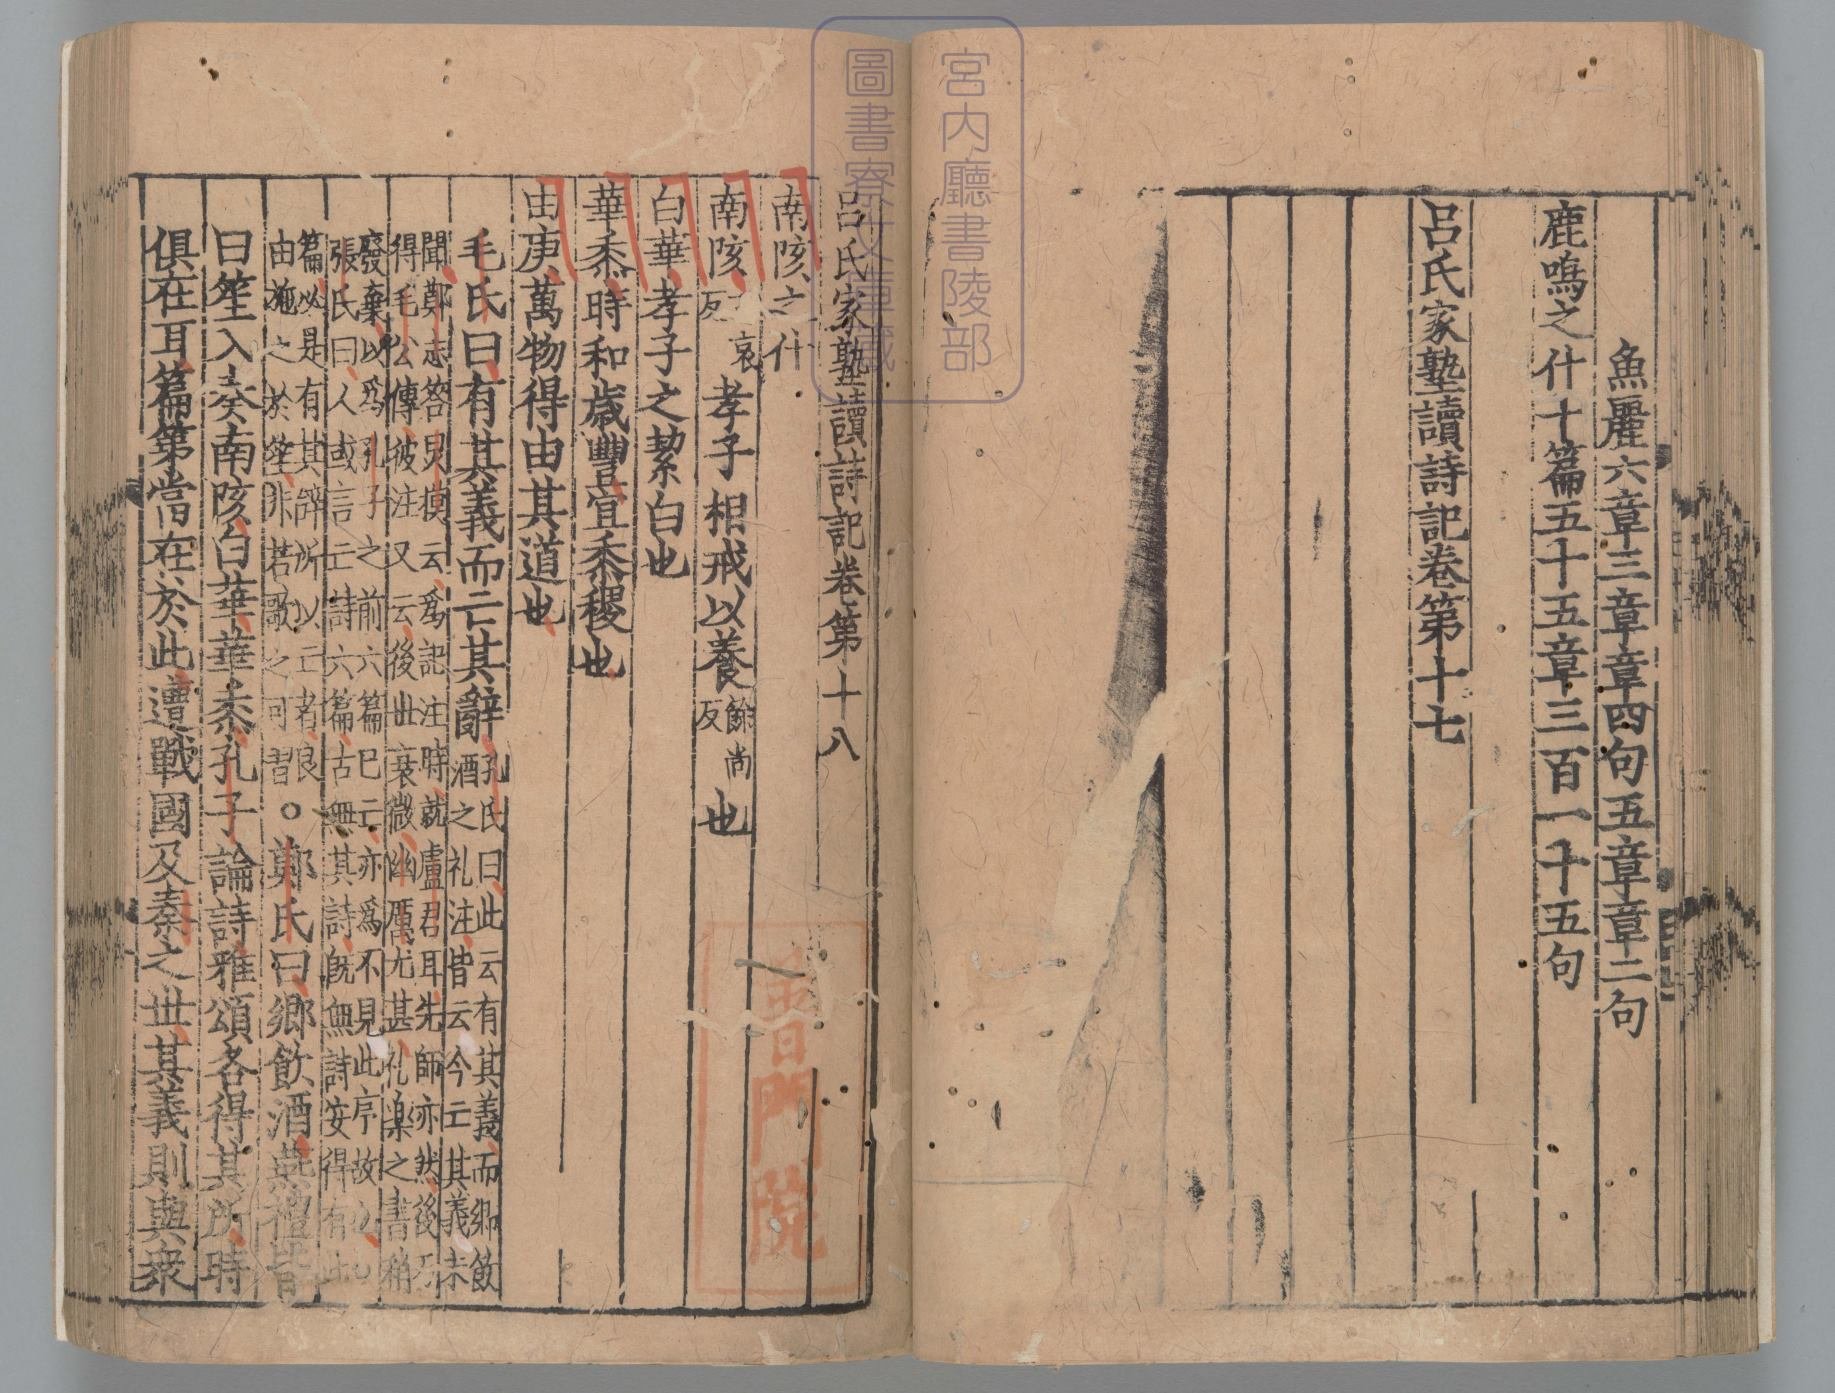 魚麗六章三章章四句五章章二句
鹿鳴之什十篇五十五章三百一十五句
呂氏家塾讀詩記卷第十七
宮内廳書陵部
圖書寮文庫藏
呂氏家塾讀詩記卷第十八
南陔之什
南陔 哀反 孝子相戒以養 餘尚反 也
白華孝子之絜白也
華黍時和歲豐宜黍稷也
由庚萬物得由其道也
毛氏曰有其義而亡其辭 孔氏曰此云有其義而鄉飲
酒之礼注皆云今亡其義未
聞鄭志答炅模云爲記注時就盧君耳先師亦然後乃
得毛公傳彼注又云後世衰微幽厲尤甚礼樂之書稍
廢棄以爲孔子之前六篇巳亡亦爲不見此序故也
張氏曰人或言亡詩六篇古無其詩旣無詩安得有此
篇必是有其辭所以亡者良
由施之於笙非若歌之可習。鄭氏曰鄉飲酒燕禮皆
曰笙入奏南陔白華華黍孔子論詩雅頌各得其所時
俱在耳篇第當在於此遭戰國及秦之世其義則與衆
普門院